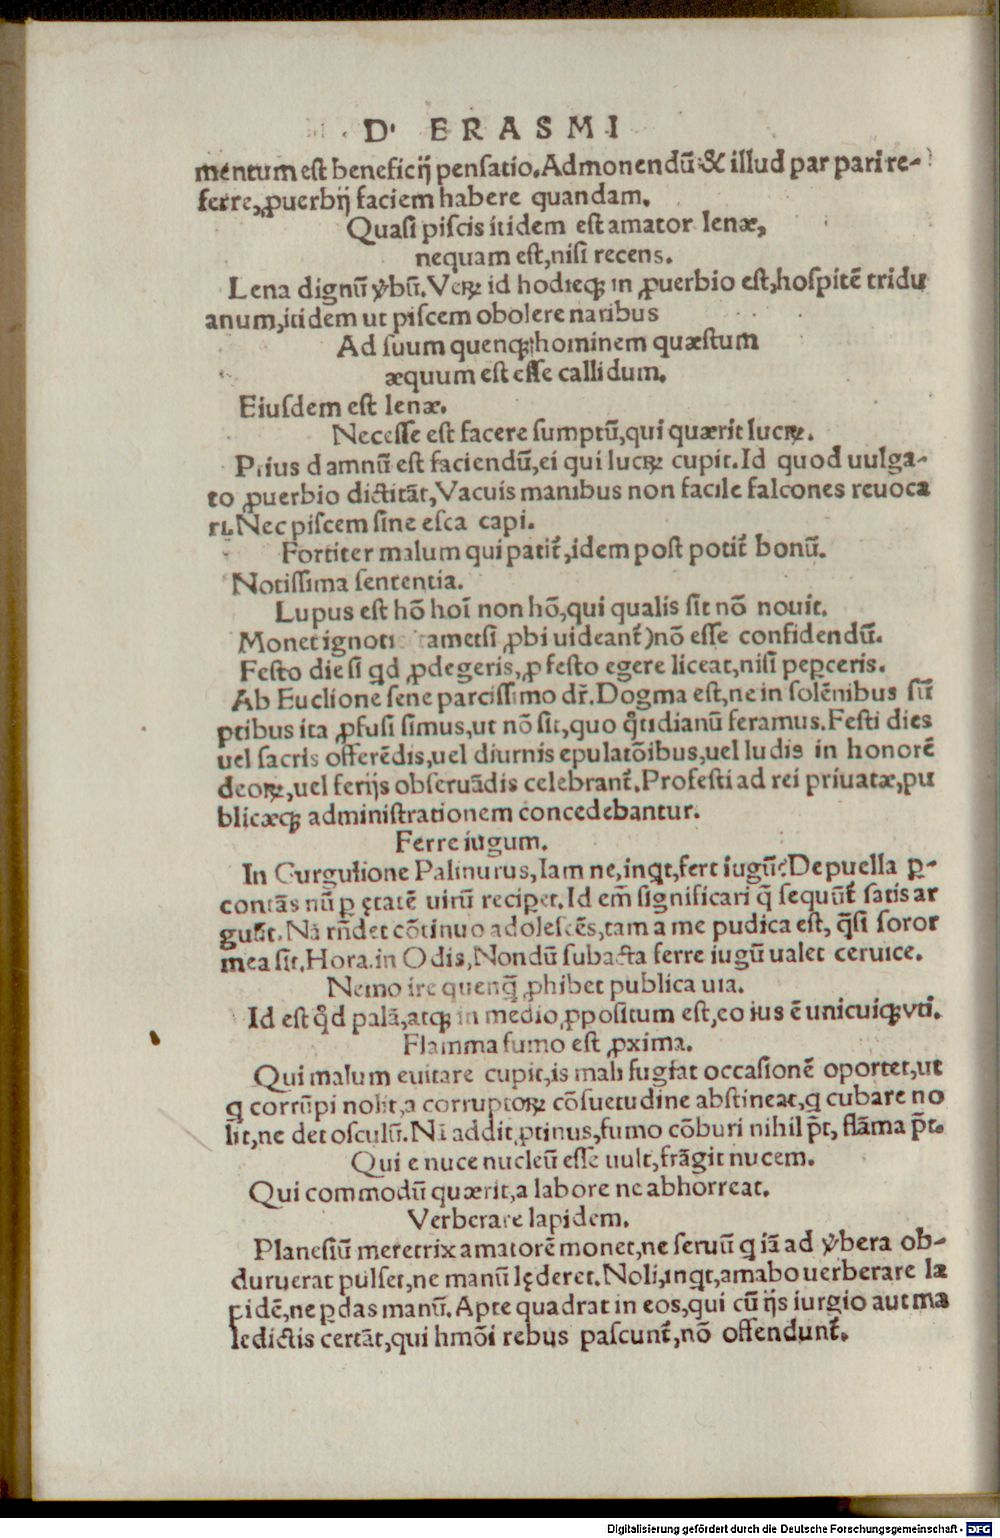 D· ERASMI
mentum est beneficij pensatio. Admonendū & illud par pari re-
ferre, ꝓuerbij faciem habere quandam.
Quasi piscis itidem est amator lenæ,
nequam est, nisi recens.
Lena dignū ỽbū. Veꝝ id hodieqꝫ in ꝓuerbio est, hospitē tridu
anum, itidem ut piscem obolere naribus
Ad suum quenqꝫ hominem quæstum
æquum est esse callidum.
Eiusdem est lenæ.
Necesse est facere sumptū, qui quærit lucꝝ.
Prius damnū est faciendū, ei qui lucꝝ cupit. Id quod uulga-
to ꝓuerbio dictitāt, Vacuis manibus non facile falcones reuoca
ri. Nec piscem sine esca capi.
Fortiter malum qui patit̃, idem post potit̃ bonū.
Notissima sententia.
Lupus est hō hoī non hō, qui qualis sit nō nouit.
Monet ignoti tametsi ꝓbi uideant̃) nō esse confidendū.
Festo die si qd ꝓdegeris, ꝓfesto egere liceat, nisi peꝑceris.
Ab Euclione sene parcissimo dr̄. Dogma est, ne in solēnibus sū
ptibus ita ꝓfusi simus, ut nō sit, quo qͦtidianū feramus. Festi dies
uel sacris offerēdis, uel diurnis epulatōibus, uel ludis in honorē
deoꝝ, uel ferijs obseruādis celebrant̃. Profesti ad rei priuatæ, pu
blicæqꝫ administrationem concedebantur.
Ferre iugum.
In Curgulione Palinurus, Iam ne, inqt, fert iugū? De puella ꝑ-
contās nū ꝑ ętatē uirū reciperet. Id em̄ significari q̄ sequūt̃ satis ar
guūt. Nā rn̄det cōtinuo adolescēs, tam a me pudica est, q̄si soror
mea sit. Hora. in Odis, Nondū subacta ferre iugū ualet ceruice.
Nemo ire quenq̄ ꝓhibet publica uia.
Id est qͦd palā, atqꝫ in medio ꝓpositum est, eo ius ē unicuiqꝫ vti.
Flamma fumo est ꝓxima.
Qui malum euitare cupit, is mali fugiat occasionē oportet, ut
q corrūpi nolit, a corruptoꝝ cōsuetudine abstineat, q cubare no
lit, ne det osculū. Nā addit ꝓtinus, fumo cōburi nihil pōt, flāma pōt.
Qui e nuce nucleū esse uult, frāgit nucem.
Qui commodū quærit, a labore ne abhorreat.
Verberare lapidem.
Planesiū meretrix amatorē monet, ne seruū q iā ad ỽbera ob-
duruerat pulset, ne manū lęderet. Noli, inqt, amabo uerberare la
pidē, ne ꝑdas manū. Apte quadrat in eos, qui cū ijs iurgio aut ma
ledictis certāt, qui hmōi rebus pascunt̃, nō offendunt̃.
Digitalisierung gefördert durch die Deutsche Forschungsgemeinschaft - DFG